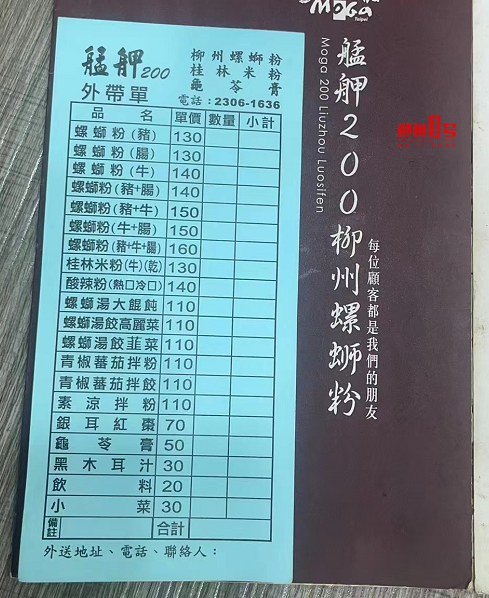 艋舺200
外帶單
柳州螺螄粉
桂林米粉
龜苓膏
電話：2306-1636
品名 單價 數量 小計
螺螄粉(豬) 130
螺螄粉(腸) 130
螺螄粉(牛) 140
螺螄粉(豬+腸) 140
螺螄粉(豬+牛) 150
螺螄粉(牛+腸) 150
螺螄粉(豬+牛+腸) 160
桂林米粉(牛)(乾) 130
酸辣粉(熱口冷口) 140
螺螄湯大餛飩 110
螺螄湯餃高麗菜 110
螺螄湯餃韭菜 110
青椒蕃茄拌粉 110
青椒蕃茄拌餃 110
素涼拌粉 110
銀耳紅棗 70
龜苓膏 50
黑木耳汁 30
飲料 20
小菜 30
備註 合計
外送地址、電話、聯絡人：
Moga
Taipei
艋舺200柳州螺螄粉
Moga 200 Liuzhou Luosifen
每位顧客都是我們的朋友